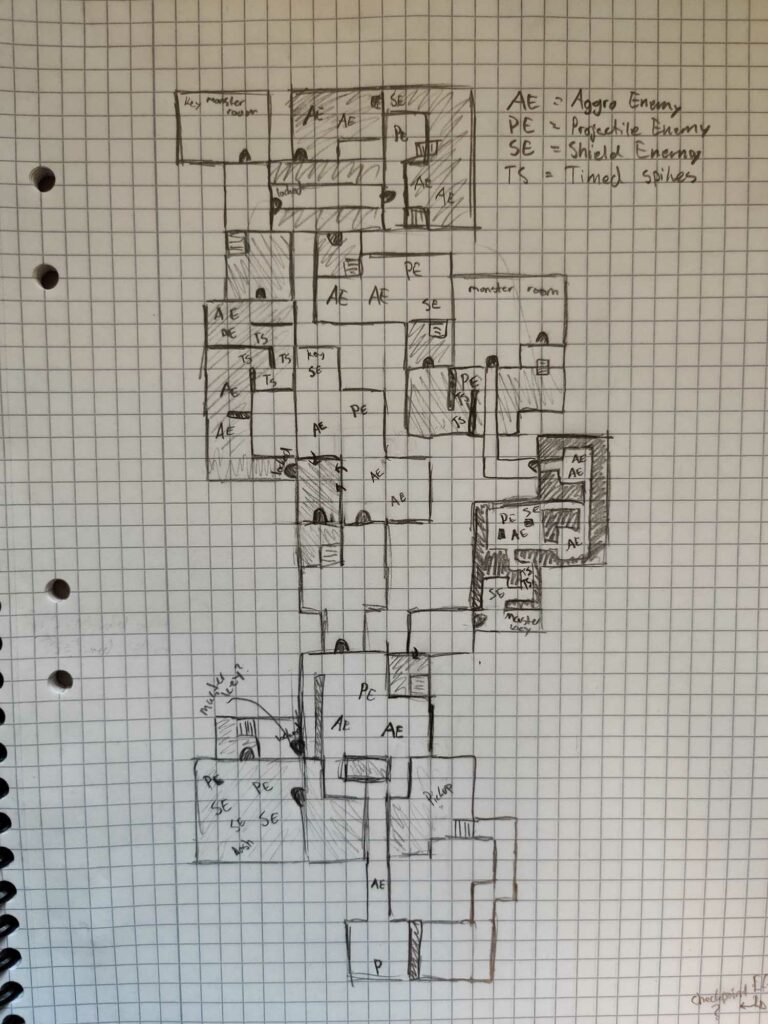 Key monster
room
AE
AE
SE
PE
AE
AE
AE = Aggro Enemy
PE = Projectile Enemy
SE = Shield Enemy
TS = Timed spikes
locked
PE
AE
AE
SE
monster room
AE
AE
TS
TS
TS
TS
AE
AE
Key
SE
PE
AE
PE
TS
TS
locked
AE
AE
AE
AE
PE
SE
AE
AE
TS
TS
SE
Master
key
master
key?
PE
AE
AE
locked
PE
PE
SE
SE
SE
dash
Pickup
AE
P
checkpoint
?